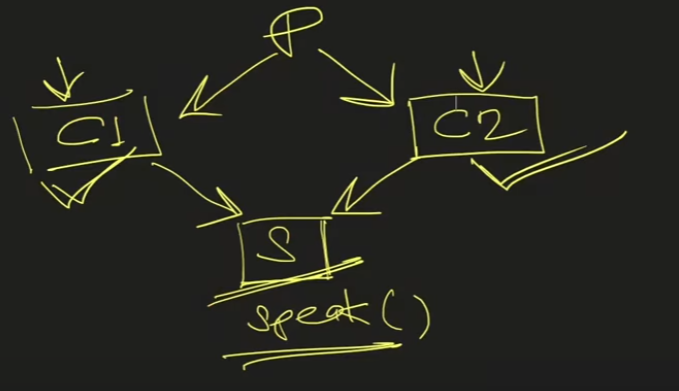 P
C1 C2
S
speak()